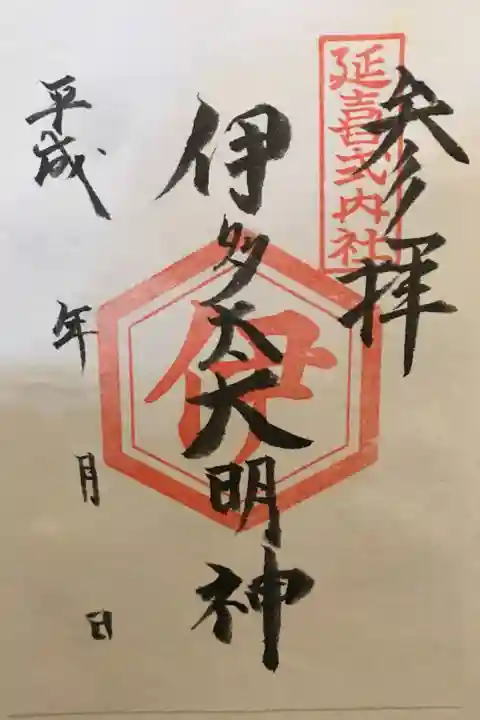 延喜式内社
参拝
伊多太大明神
伊
平成 年 月 日